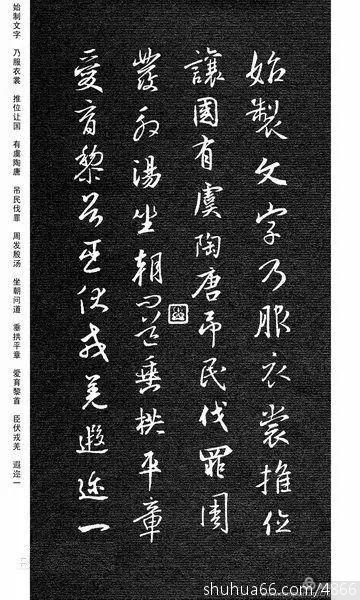 始製文字乃服衣裳推位
讓國有虞陶唐吊民伐罪周
發殷湯坐朝問道垂拱平章
愛育黎首臣伏戎羌遐迩一
始制文字 乃服衣裳 推位让国 有虞陶唐 吊民伐罪 周发殷汤 坐朝问道 垂拱平章 爱育黎首 臣伏戎羌 遐迩一
shuhua66.com/4866